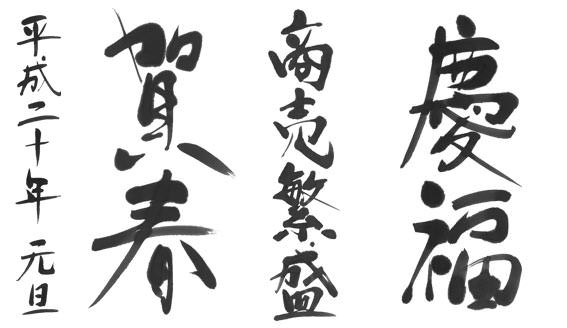 慶福
商売繁盛
賀春
平成二十年 元旦